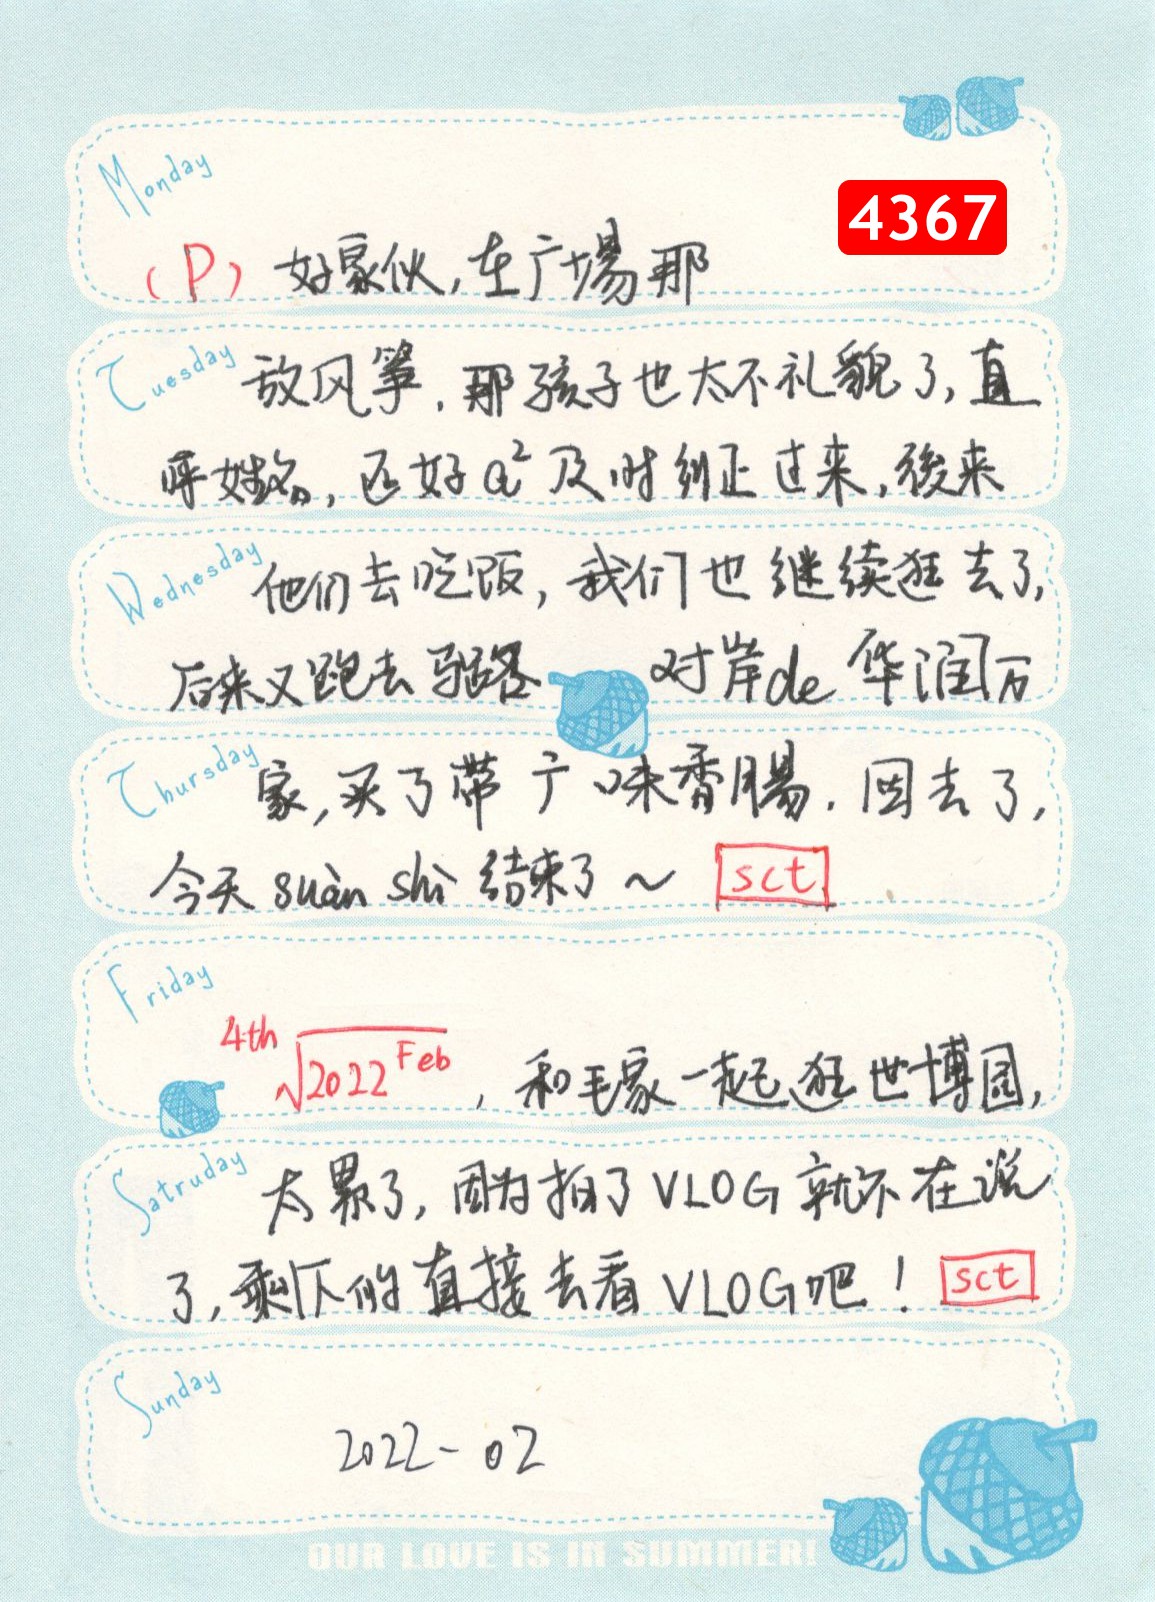 Monday
4367
(P) 好家伙,在广場那
Tuesday
放风筝,那孩子也太不礼貌了,直
呼姓名,还好a²及时纠正过来,後来
Wednesday
他们去吃饭,我们也继续逛去了,
后来又跑去骆客 对岸de华润万
Thursday
家,买了带广味香腸.回去了,
今天suàn shì结束了~ sct
Friday
4th√2022 Feb ,和毛家一起逛世博园,
Satruday
太累了,因为拍了VLOG就不在说
了,剩下的直接去看VLOG吧! sct
Sunday
2022-02
OUR LOVE IS IN SUMMER!